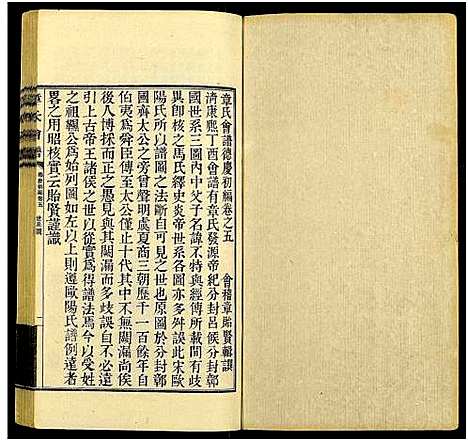 章氏會譜德慶初編卷之五　會稽章貽賢輯譔
清康熙丁酉會譜有章氏發源帝紀分封呂侯分封鄣
國世系三圖內中父子名諱不特與經傳所載間有歧
異卽核之馬氏繹史炎帝世系圖亦多舛誤此宋歐
陽氏所以譜圖之法斷自可見之世也原圖於分封鄣
國齊太公之旁曾聲明虞夏商三朝歷千一百餘年自
伯夷爲舜臣傳至太公僅止十代其中不無闕漏尚俟
後人博採而正之愚見與其闕漏而多歧誤自不必遠
引上古帝王諸侯之世以從實爲得譜法焉今以受姓
之祖韅公爲始列圖如左以上則遵歐陽氏譜例遠者
畧之用昭核實云貽賢謹識
章氏會譜
德慶初編卷五　世系圖
一